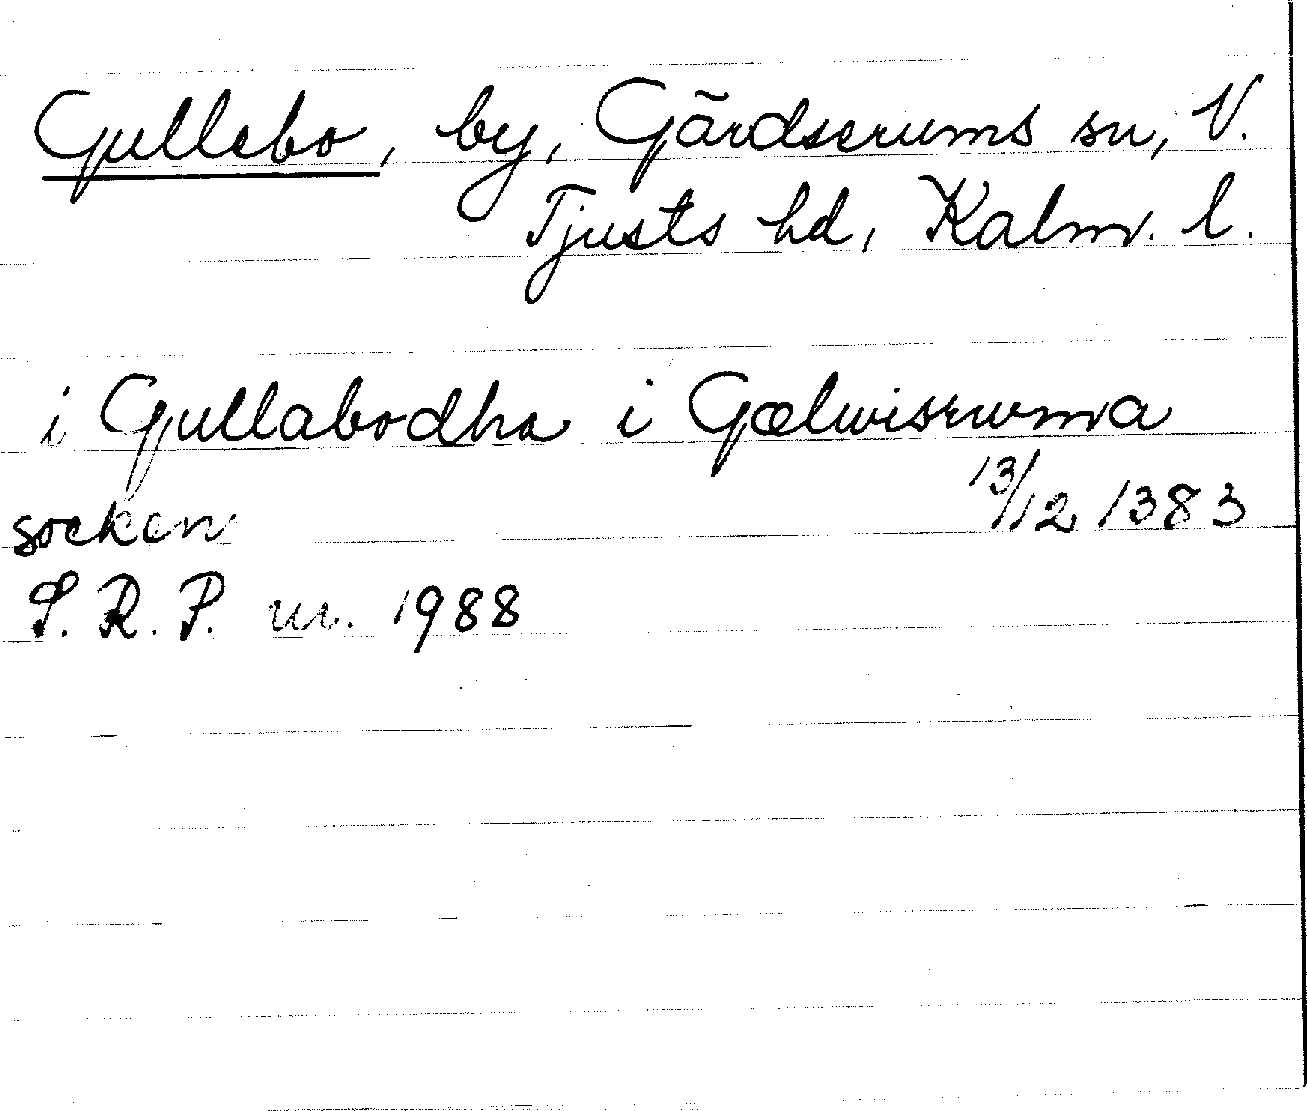 Gullebo, by, Gärdserums sn, V.
Tjusts hd, Kalm. l.
i Gullabodha i Gælwisruma
socken 13/12 1383
S. R. P. nr. 1988